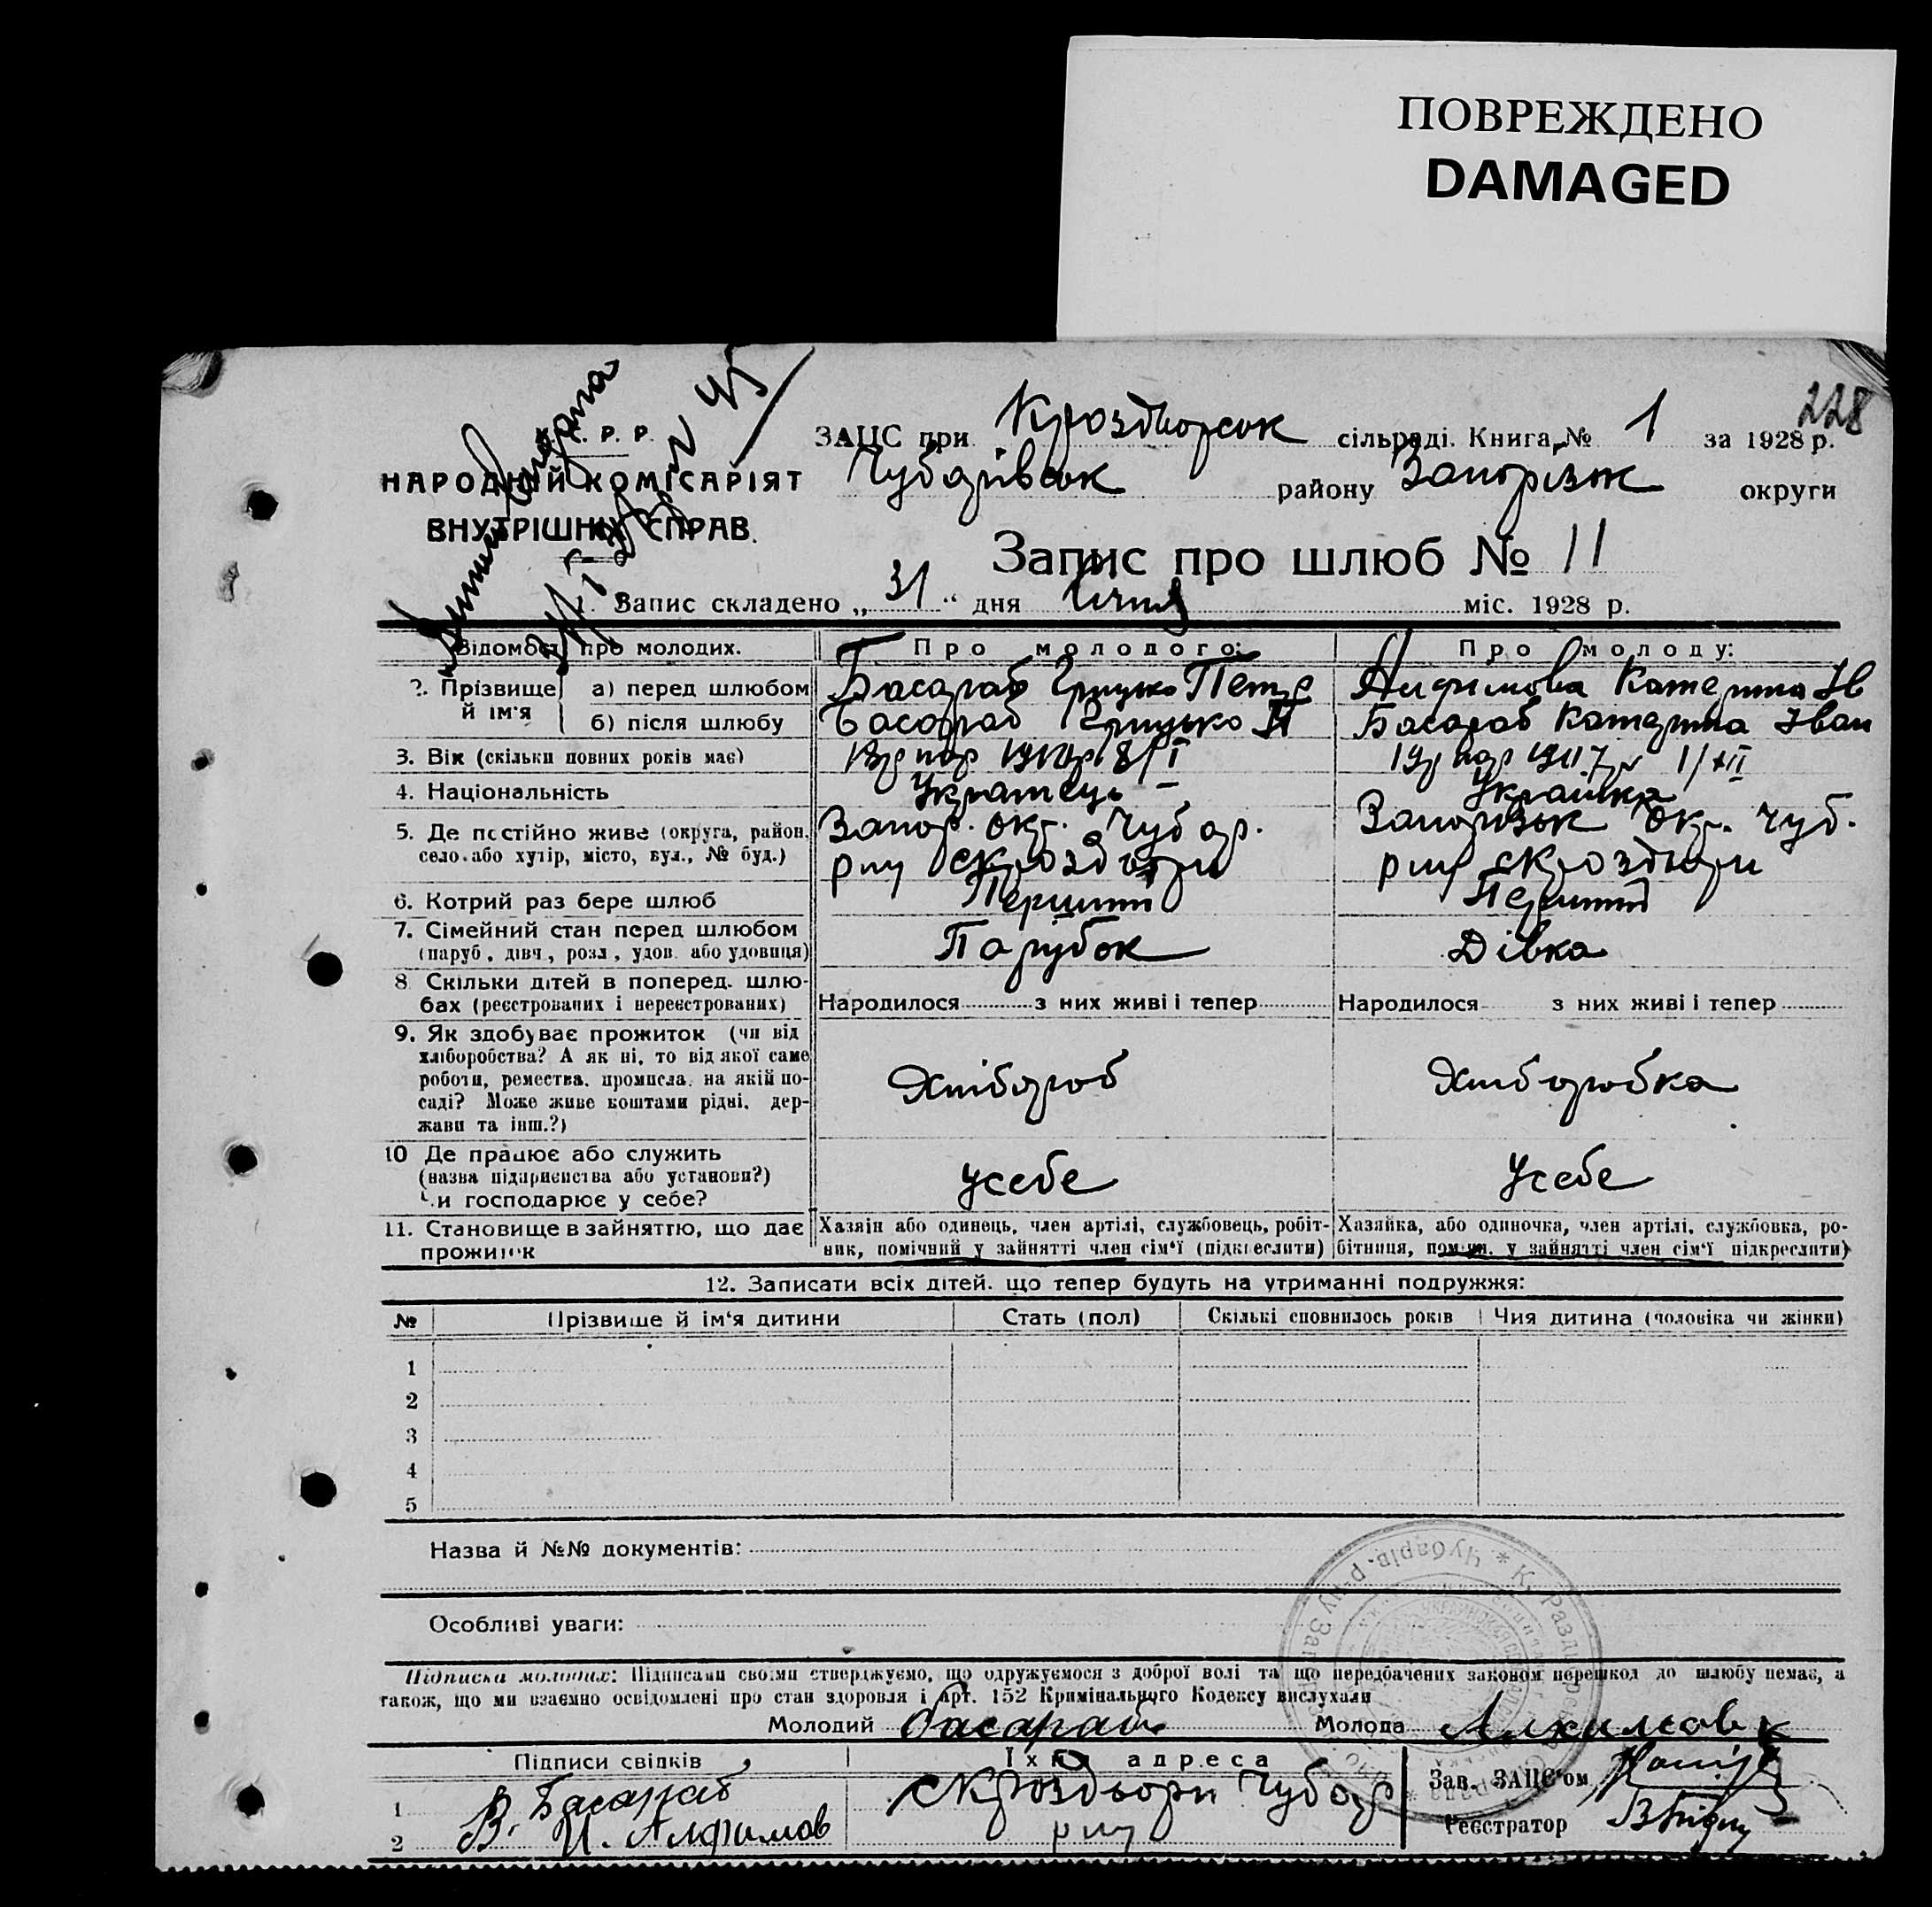 ПОВРЕЖДЕНО
DAMAGED
228
У. С. Р. Р.
НАРОДНІЙ КОМІСАРІЯТ
ВНУТРІШНІХ СПРАВ.
№ 45
ЗАЦС при Кроздорськ сільраді. Книга № 1 за 1928 р.
Чубарівськ району Запорізьк округи
Запис про шлюб № 11
1. Запис складено „ 31 “ дня Січня міс. 1928 р.
Відомості про молодих.
Про молодого:
Про молоду:
2. Прізвище й ім'я
а) перед шлюбом
Басараб Грицько Петр
Катерина Ів
б) після шлюбу
Басараб Грицько П
Басараб Катерина Іван
3. Вік (скільки повних років має)
4. Національність
Українець
Українка
5. Де постійно живе (округа, район, село або хутір, місто, вул., № буд.)
Запор. окр. Чубар.
рну
Запорізьк окр. Чуб.
рну
6. Котрий раз бере шлюб
Перший
Перший
7. Сімейний стан перед шлюбом
(паруб., дівч., розл., удов. або удовиця)
Парубок
Дівка
8. Скільки дітей в поперед. шлюбах (реєстрованих і нереєстрованих)
Народилося з них живі і тепер
Народилося з них живі і тепер
9. Як здобуває прожиток (чи від хліборобства? А як ні, то від якої саме роботи, ремества, промисла, на якій посаді? Може живе коштами рідні, держави та інш.?)
Хлібороб
Хліборобка
10 Де працює або служить
(назва підприємства або установи?)
Чи господарює у себе?
Усебе
Усебе
11. Становище в зайняттю, що дає прожиток
Хазяїн або одинець, член артілі, службовець, робітник, помічний у зайнятті член сім'ї (підкреслити)
Хазяйка, або одиночка, член артілі, службовка, робітниця, поміч. у зайнятті член сім'ї підкреслити)
12. Записати всіх дітей, що тепер будуть на утриманні подружжя:
№ Прізвище й ім'я дитини Стать (пол) Скількі сповнилось років Чия дитина (чоловіка чи жінки)
1
2
3
4
5
Назва й №№ документів:
Особливі уваги:
Підписка молодих: Підписами своїми стверджуємо, що одружуємося з доброї волі та що передбачених законом перешкод до шлюбу немає, а
також, що ми взаємно освідомлені про стан здоровля і Арт. 152 Кримінального Кодексу вислухали
Молодий Басараб Молода
Підписи свідків
Їхня адреса
1 В. Басараб
2 И. Алфимов
Чубар
рну
Зав. ЗАЦС'ом
Реєстратор